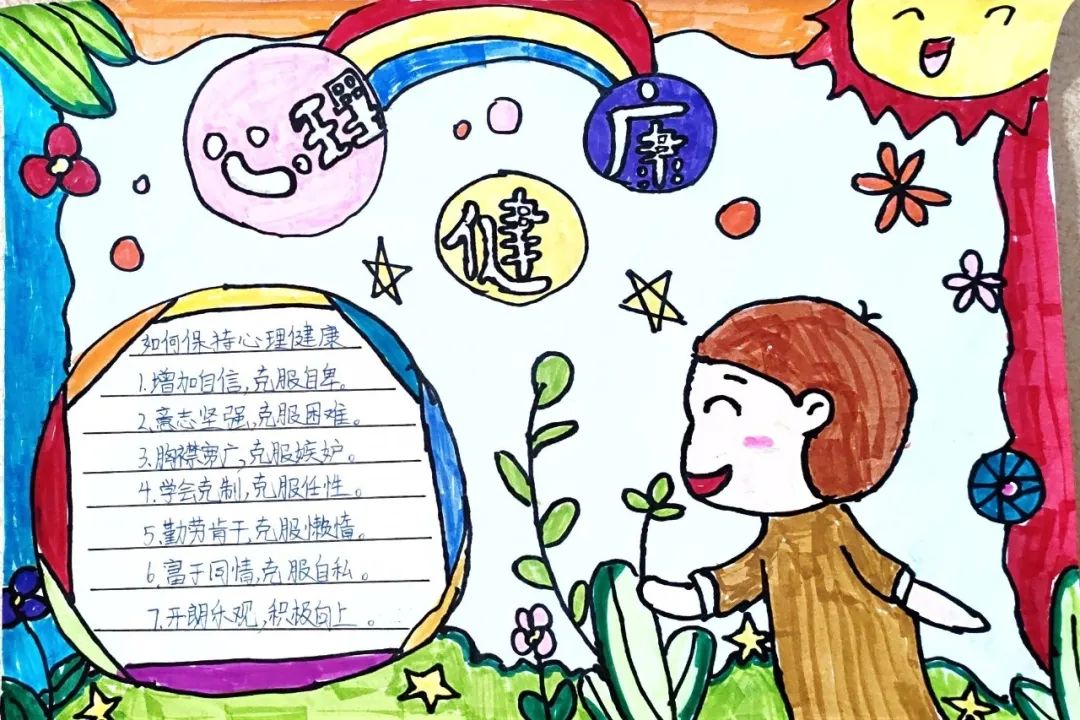 心理健康
如何保持心理健康
1.增加自信,克服自卑。
2.意志坚强,克服困难。
3.胸襟宽广,克服嫉妒。
4.学会克制,克服任性。
5.勤劳肯干,克服懒惰。
6.富于同情,克服自私。
7.开朗乐观,积极向上。